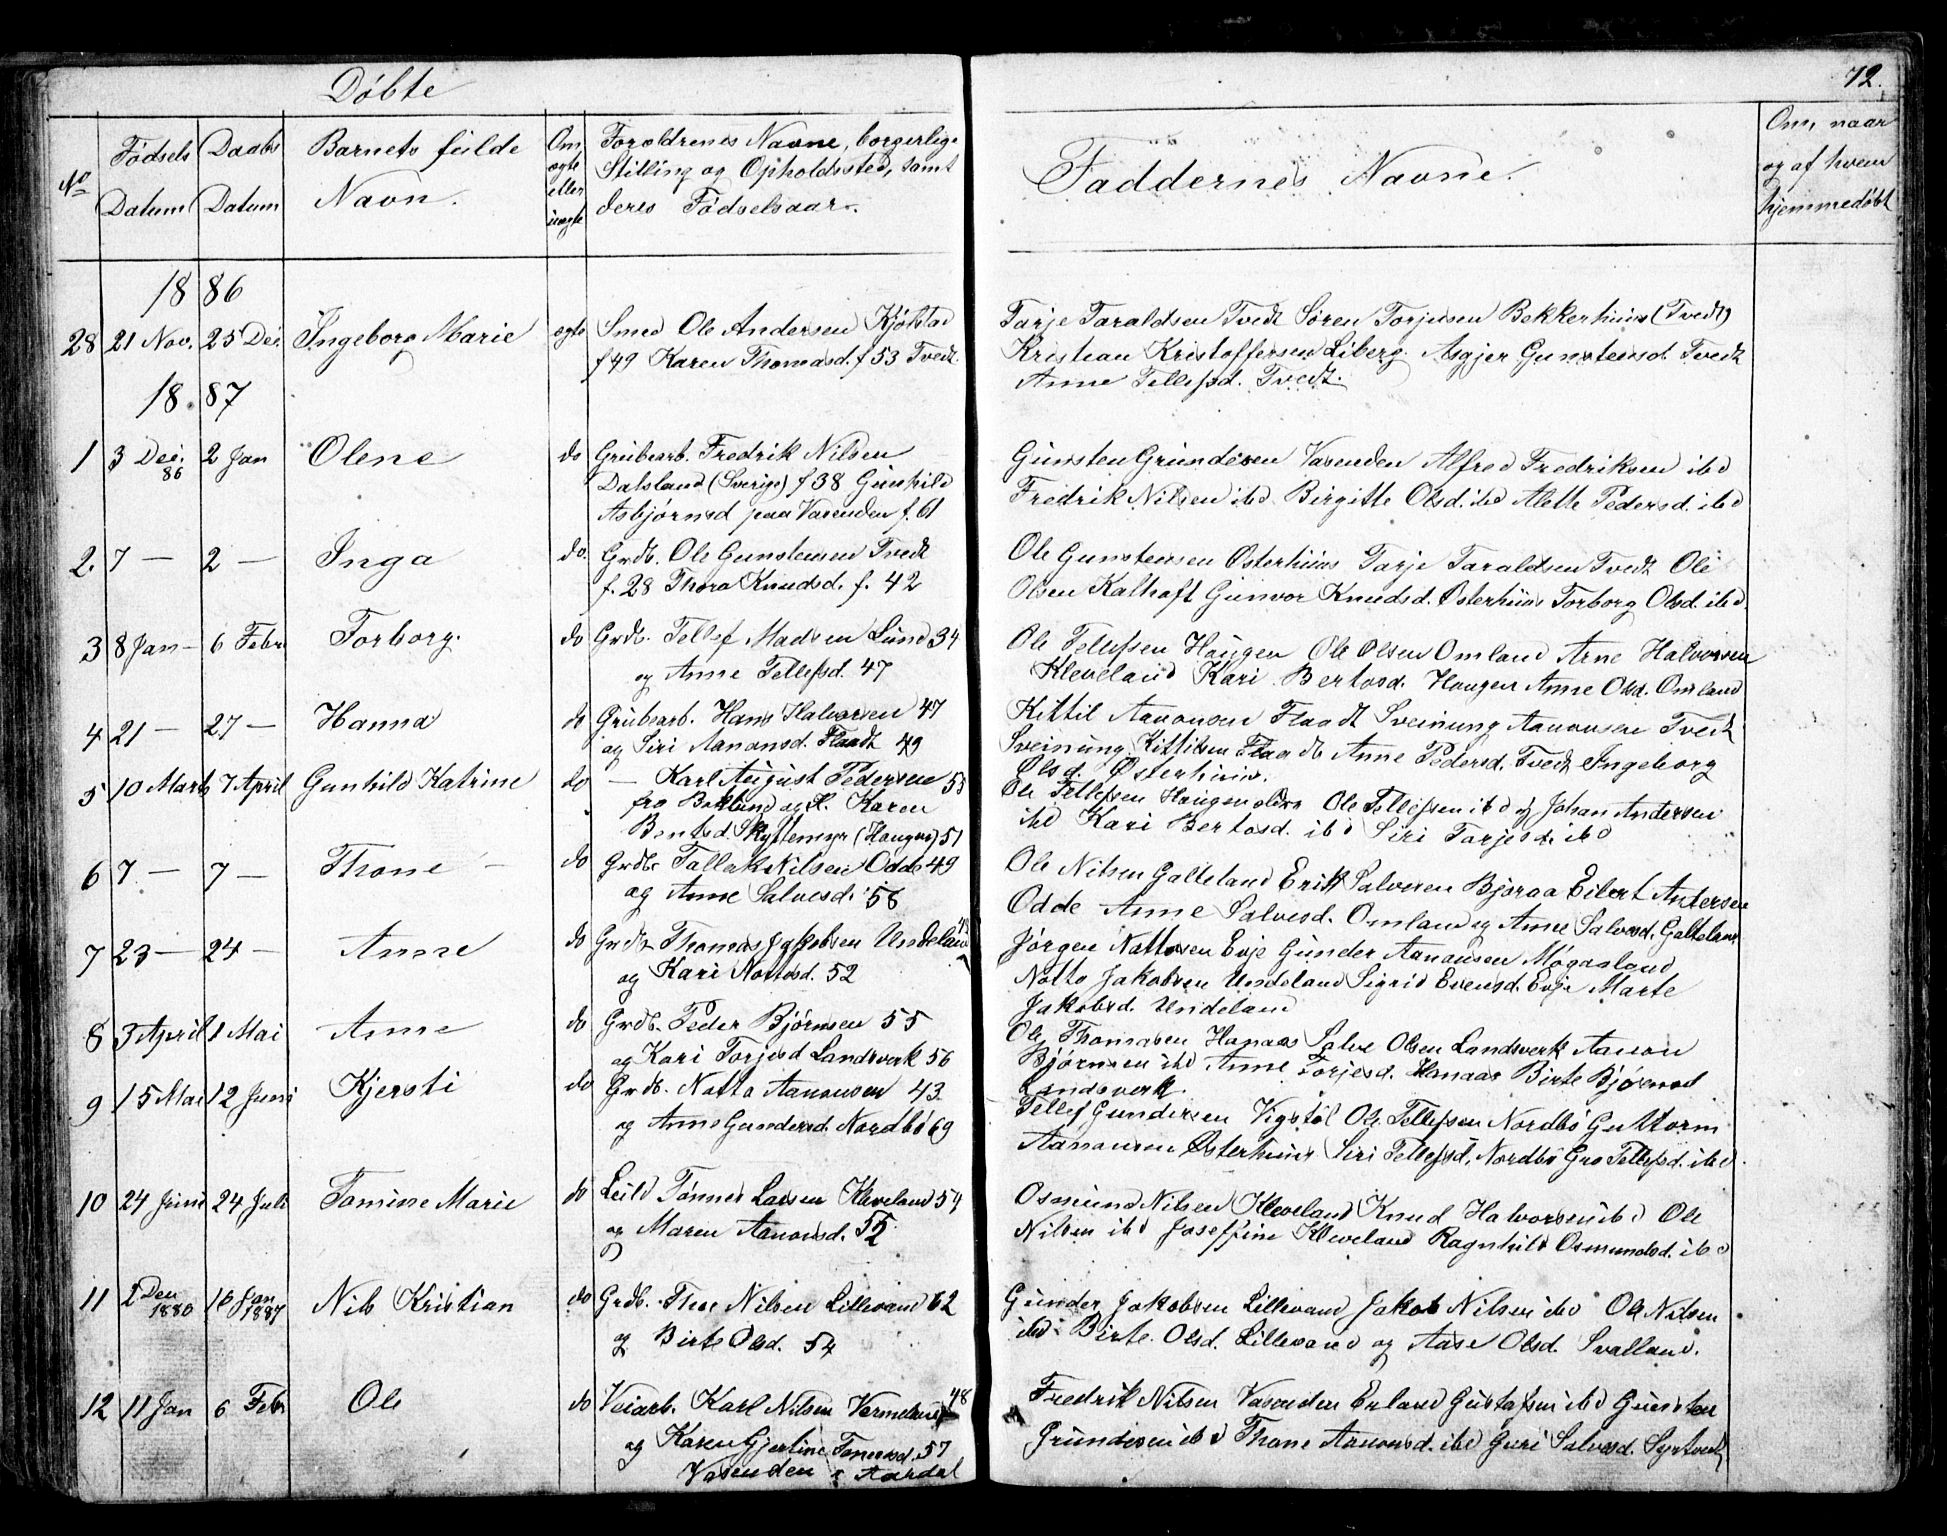 Döbte
72.
No
Fødsels Datum
Daabs Datum
Barnets fulde Navn.
Om ægte eller uægte
Forældrenes Navne, borgerlige
Stilling og Opholdssted, samt
deres Fødselsaar.
Faddernes Navne.
Om, naar
og af hvem
hjemmedøbt
1886
28 21 Nov. 25 Dec. Ingeborg Marie ægte Smed Ole Andersen Kjølstad
f 49 Karen Thomasd. f 53 Tvedt
Tarje Taraldsen Tvedt Søren Torjusen Bekkerhuus (Tvedt)
Kristian Kristoffersen Liberg. Asgjer Gunstensd. Tvedt
Anne Tellefsd. Tvedt.
1887
1 3 Dec. 86 2 Jan Olene do Grubearb. Fredrik Nilsen
Dalsland (Sverige) f 38 Gunhild
Asbjørnsd paa Vasenden f. 61
Gunsten Grundesen Vasenden Alfred Fredriksen ibd
Fredrik Nilsen ibd Birgitte Olsd. ibd Alette Pedersd. ibd
2. 7 — 2 — Inga do. Grdb. Ole Gunstensen Tvedt
f. 28 Thora Knudsd. f. 42
Ole Gunstensen Østerhuus Tarje Taraldsen Tvedt Ole
Olsen Kalhaft Gunvor Knudsd. Østerhuus Torborg Olsd. ibd.
3 8 Jan — 6 Febr Torborg. do Grdb. Tellef Madsen Lund 34
og Anne Tellefsd. 47
Ole Tellefsen Haugen Ole Olsen Omland Arne Halvorsen
Kleveland Kari Bertosd. Haugen Anne Olsd. Omland
4 21 — 27 — Hanna do Grubearb. Hans Halvorsen 47
og Siri Aanonsd. Flaadt 49
Kittil Aanonsen Flaadt Sveinung Aanonsen Tvedt
Sveinung Kittilsen Flaadt Anne Pedersd. Tvedt Ingeborg
Olsd. Østerhuus.
5 10 Marts 7 April Gunhild Katrine do — Karl August Pedersen 53
fra Boklund og H. Karen
Bentsd Skyttemyr (Haugen) 51
Ole Tellefsen Haugen Ole Tellefsen ibd og Johan Andersen
ibd Kari Bertosd. ibd Siri Tarjesd. ibd
6 7 — 7 — Thone do Grdb. Tallak Nilsen Odde 49
og Anne Salvesd. 58
Ole Nilsen Galteland Erik Salvesen Bjoraa Eilert Andersen
Odde Anne Salvesd. Omland og Anne Salvesd. Galteland
7 23 — 24 — Anne do Grdb. Thomas Jakobsen Undeland
og Kari Nottosd. 52
Jørgen Nottosen Evje Gunder Aanonsen Møgasland
Notto Jakobsen Undeland Sigrid Evensd. Evje Marte
Jakobsd. Undeland
8 3 April 1 Mai Anne do Grdb. Peder Bjørnsen 55
og Kari Torjesd Landsverk 56
Ole Thomasen Hanaas Salve Olsen Landsverk Aanon
Bjørnsen ibd Anne Torjesd. Hanaas Birte Bjørnsd
Landsverk.
9 15 Mai 12 Juni Kjersti do Grdb. Notto Aanonsen 43
og Anne Gundersd. Nordbø 69
Tellef Gundersen Vigstøl Ole Tellefsen Nordbø Guttorm
Aanonsen Østerhuus Siri Tellefsd. Nordbø Gro Tellefsd. ibd.
10 24 Juni 24 Juli Tomine Marie do Leild Tønnes Larsen Kleveland 54
og Maren Aanonsd. 52
Osmund Nilsen Kleveland Knud Halvorsen ibd Ole
Nilsen ibd Joseffine Kleveland Ragnhild Osmundsd. ibd
11 2 Den 1880 16 Jan 1887 Nils Kristian do Grdb. Thor Nilsen Lillevand 62
og Birte Olsd. 54
Gunder Jakobsen Lillevand Jakob Nilsen ibd Ole Nilsen
ibd Birte Olsd. Lillevand og Aase Olsd. Svalland.
12 11 Jan 6 Febr Ole do Veiarb. Karl Nilsen Vermeland 48
og Karen Gjertine Tomesd. 57
Vasenden i Aardal
Fredrik Nilsen Vasenden Erland Gustafsen ibd Gunsten
Grundesen ibd Thone Aanonsd. ibd Guri Salvesd. Syrtveit